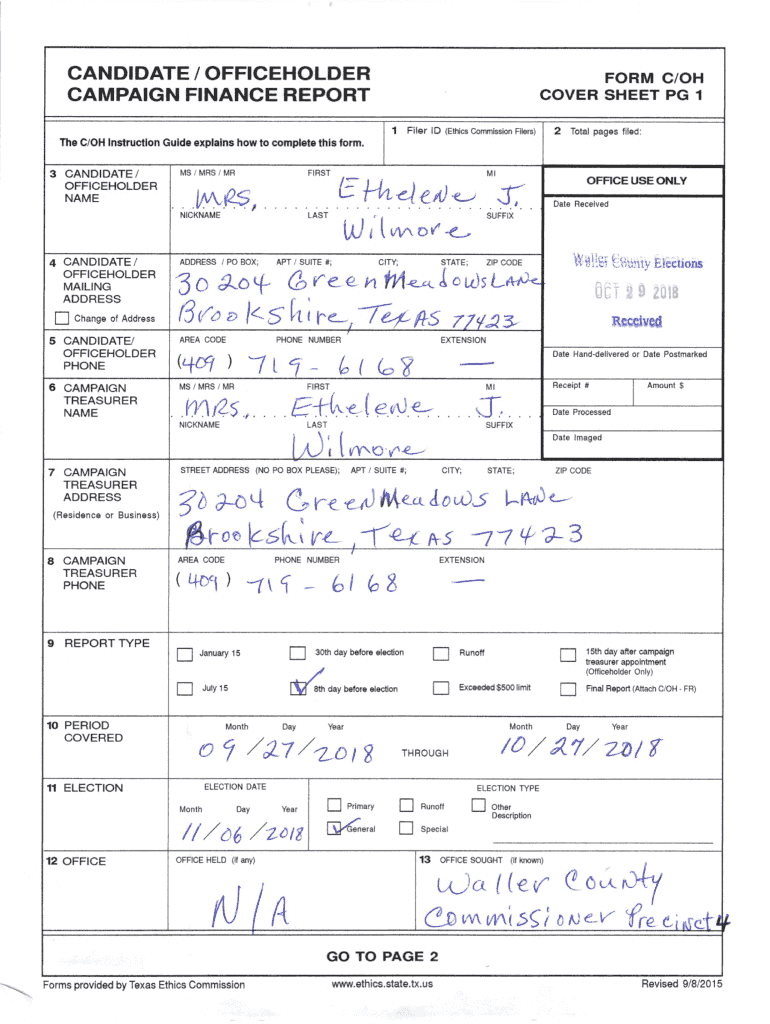 CANDIDATE / OFFICEHOLDER
CAMPAIGN FINANCE REPORT
FORM C/OH
COVER SHEET PG 1
The C/OH Instruction Guide explains how to complete this form.
1 Filer ID (Ethics Commission Filers)
2 Total pages filed:
3 CANDIDATE / OFFICEHOLDER NAME
MS / MRS / MR FIRST MI
MRS. Ethelene J.
NICKNAME LAST SUFFIX
Wilmore
OFFICE USE ONLY
Date Received
Waller County Elections
OCT 29 2018
Received
4 CANDIDATE / OFFICEHOLDER MAILING ADDRESS
Change of Address
ADDRESS / PO BOX; APT / SUITE #; CITY; STATE; ZIP CODE
30204 Green Meadows LANe
Brookshire, TexAS 77423
5 CANDIDATE/ OFFICEHOLDER PHONE
AREA CODE PHONE NUMBER EXTENSION
(409) 719-6168 —
Date Hand-delivered or Date Postmarked
6 CAMPAIGN TREASURER NAME
MS / MRS / MR FIRST MI
MRS. Ethelene J.
NICKNAME LAST SUFFIX
Wilmore
Receipt # Amount $
Date Processed
Date Imaged
7 CAMPAIGN TREASURER ADDRESS
(Residence or Business)
STREET ADDRESS (NO PO BOX PLEASE); APT / SUITE #; CITY; STATE; ZIP CODE
30204 Green Meadows LANe
Brookshire, TexAS 77423
8 CAMPAIGN TREASURER PHONE
AREA CODE PHONE NUMBER EXTENSION
(409) 719-6168 —
9 REPORT TYPE
January 15 30th day before election Runoff 15th day after campaign treasurer appointment (Officeholder Only)
July 15 8th day before election Exceeded $500 limit Final Report (Attach C/OH - FR)
10 PERIOD COVERED
Month Day Year Month Day Year
09/27/2018 THROUGH 10/27/2018
11 ELECTION
ELECTION DATE ELECTION TYPE
Month Day Year Primary Runoff Other Description
11/06/2018 General Special
12 OFFICE
OFFICE HELD (if any)
N/A
13 OFFICE SOUGHT (if known)
Waller County
Commissioner Precinct 4
GO TO PAGE 2
Forms provided by Texas Ethics Commission www.ethics.state.tx.us Revised 9/8/2015